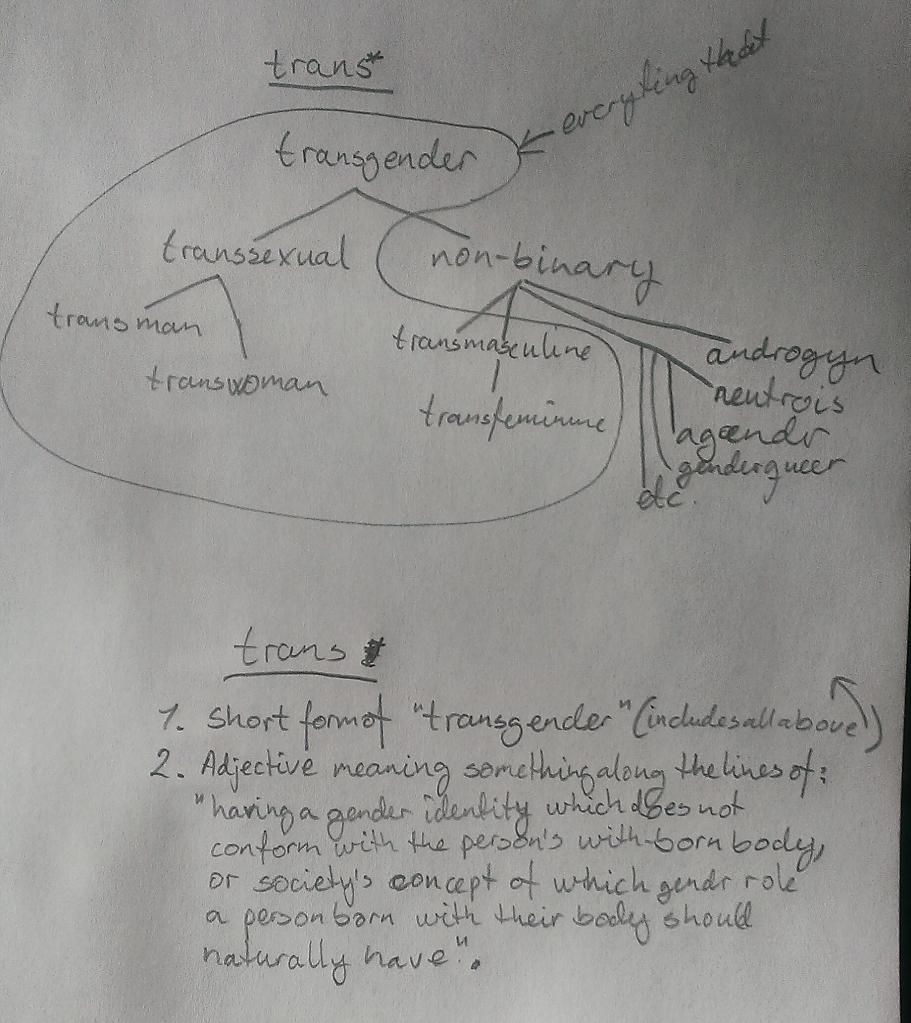 trans*
everyting that
transgender
transsexual
non-binary
transman
transmasculine
androgyn
transwoman
neutrois
transfeminine
agændr
genderqueer
etc.
trans
1. Short form of "transgender" (includes all above)
2. Adjective meaning something along the lines of:
"having a gender identity which does not
conform with the person's with-born body,
or society's concept of which gendr role
a person born with their body should
naturally have".